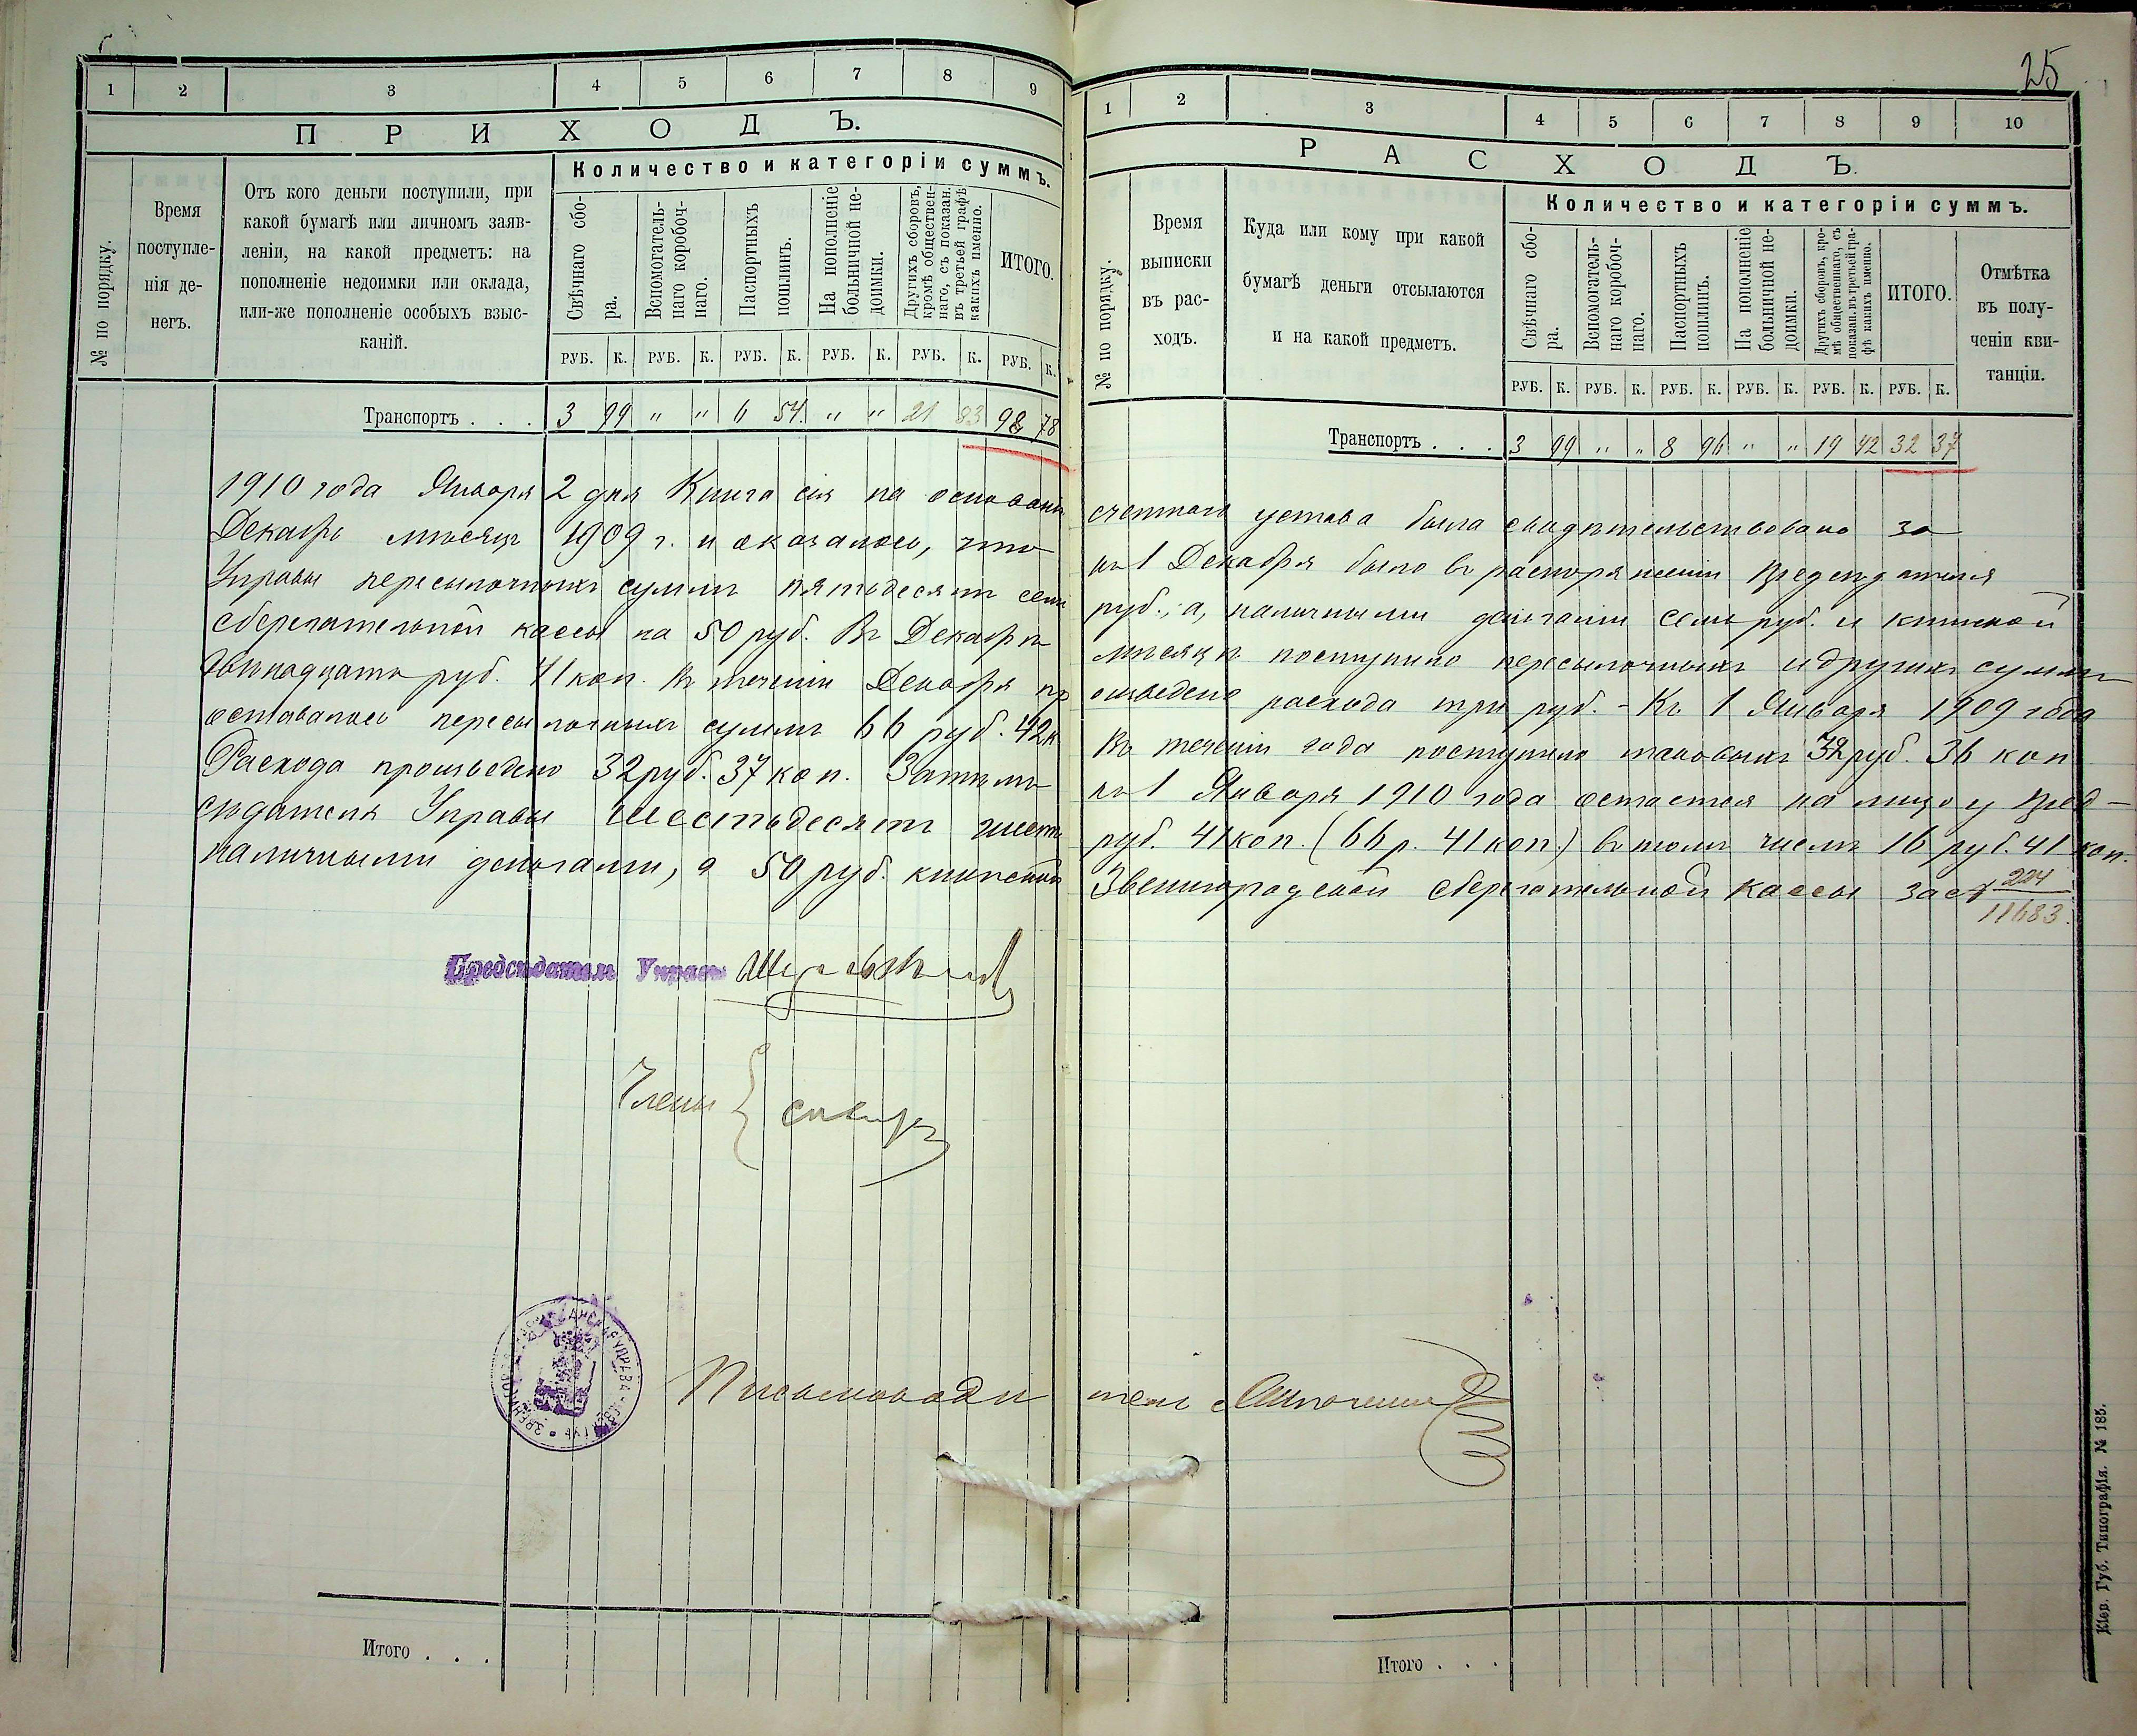 25
1 2 3 4 5 6 7 8 9
ПРИХОДЪ.
№ по порядку.
Время
поступле-
нія де-
негъ.
Отъ кого деньги поступили, при
какой бумагѣ или личномъ заяв-
леніи, на какой предметъ: на
пополненіе недоимки или оклада,
или-же пополненіе особыхъ взыс-
каній.
Количество и категоріи суммъ.
Свѣчнаго сбо-
ра.
Вспомогатель-
наго коробоч-
наго.
Паспортныхъ
пошлинъ.
На пополненіе
больничной не-
доимки.
Другихъ сборовъ,
кромѣ обществен-
наго, съ показан.
въ третьей графѣ
какихъ именно.
ИТОГО.
РУБ. К. РУБ. К. РУБ. К. РУБ. К. РУБ. К. РУБ. К.
Транспортъ . . . 3 99 " " 6 54 " " 21 83 98 78
1 2 3 4 5 6 7 8 9 10
РАСХОДЪ.
№ по порядку.
Время
выписки
въ рас-
ходъ.
Куда или кому при какой
бумагѣ деньги отсылаются
и на какой предметъ.
Количество и категоріи суммъ.
Свѣчнаго сбо-
ра.
Вспомогатель-
наго коробоч-
наго.
Паспортныхъ
пошлинъ.
На пополненіе
больничной не-
доимки.
Другихъ сборовъ, кро-
мѣ общественнаго, съ
показан. въ третьей гра-
фѣ какихъ именно.
ИТОГО.
Отмѣтка
въ полу-
ченіи кви-
танціи.
РУБ. К. РУБ. К. РУБ. К. РУБ. К. РУБ. К. РУБ. К.
Транспортъ . . . 3 99 " " 8 96 " " 19 42 32 37
1910 года Января 2 дня Книга сія на основаніи счетнаго устава была свидѣтельствована за
Декабрь мѣсяцъ 1909 г. и оказалось, что къ 1 Декабря было въ распоряженіи Предсѣдателя
Управы пересылочныхъ суммъ пятьдесятъ семь руб., а, наличными деньгами семь руб. и книжкой
сберегательной кассы на 50 руб. Въ Декабрѣ мѣсяцѣ поступило пересылочныхъ и другихъ суммъ
двѣнадцать руб. 41 коп. Въ теченіи Декабря произведено расхода три руб. - Къ 1 Января 1909 года
оставалось пересылочныхъ суммъ 66 руб. 42 к. Въ теченіи года поступило таковыхъ 32 руб. 36 коп
Расхода произведено 32 руб. 37 коп. Затѣмъ къ 1 Января 1910 года остается на лицо у Пред-
сѣдателя Управы шестьдесятъ шесть руб. 41 коп. (66 р. 41 коп.) въ томъ числѣ 16 руб. 41 коп.
наличными деньгами, а 50 руб. книжкой Звенигородской сберегательной кассы за № 224/11683.
Предсѣдатель Управы
Члены {
Письмоводитель
Итого . . .
Итого . . .
Кіев. Губ. Типографія. № 185.